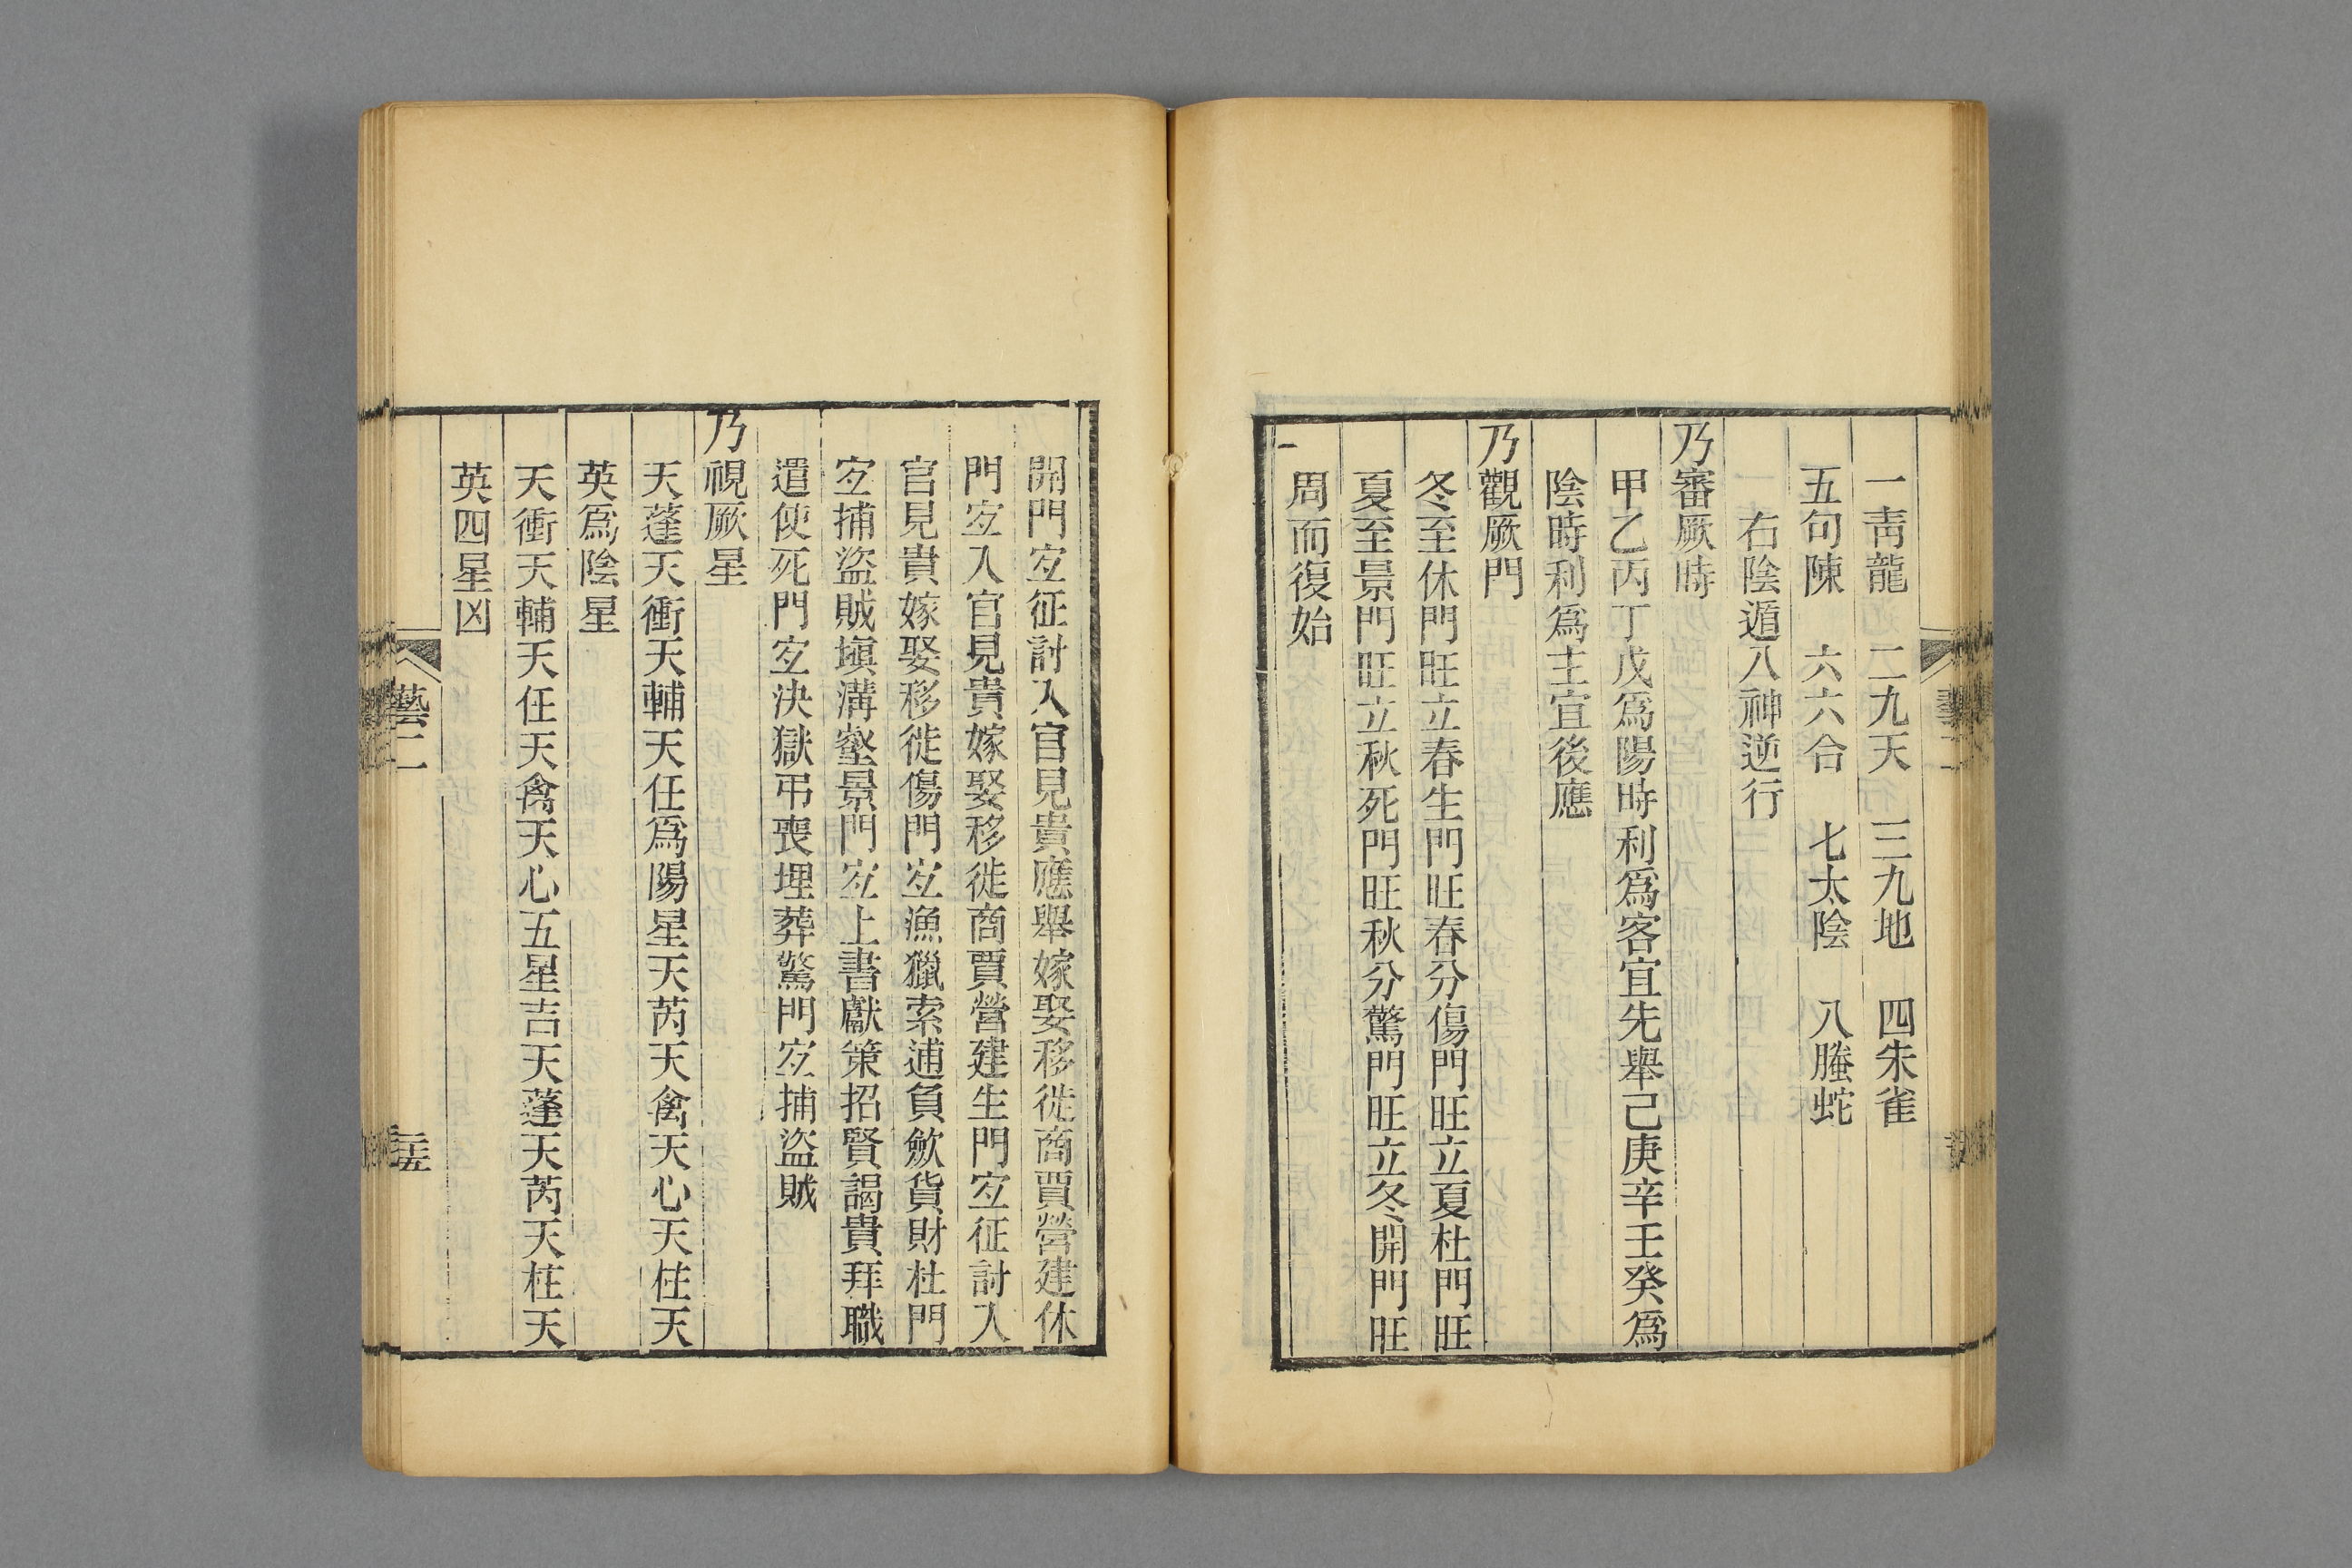 一青龍　二九天　三九地　四朱雀
五句陳　六六合　七太陰　八螣蛇
右陰遁八神逆行
乃審厥時
甲乙丙丁戊爲陽時利爲客宜先舉己庚辛壬癸爲
陰時利爲主宜後應
乃觀厥門
冬至休門旺立春生門旺春分傷門旺立夏杜門旺
夏至景門旺立秋死門旺秋分驚門旺立冬開門旺
周而復始
開門㝎征討入官見貴應舉嫁娶移徙商賈營建休
門㝎入官見貴嫁娶移徙商賈營建生門㝎征討入
官見貴嫁娶移徙傷門㝎漁獵索逋負歛貨財杜門
㝎捕盜賊塡溝壑景門㝎上書獻策招賢謁貴拜職
遣使死門㝎決獄弔喪埋葬驚門㝎捕盜賊
乃視厥星
天蓬天衝天輔天任爲陽星天芮天禽天心天柱天
英爲陰星
天衝天輔天任天禽天心五星吉天蓬天芮天柱天
英四星凶
藝二